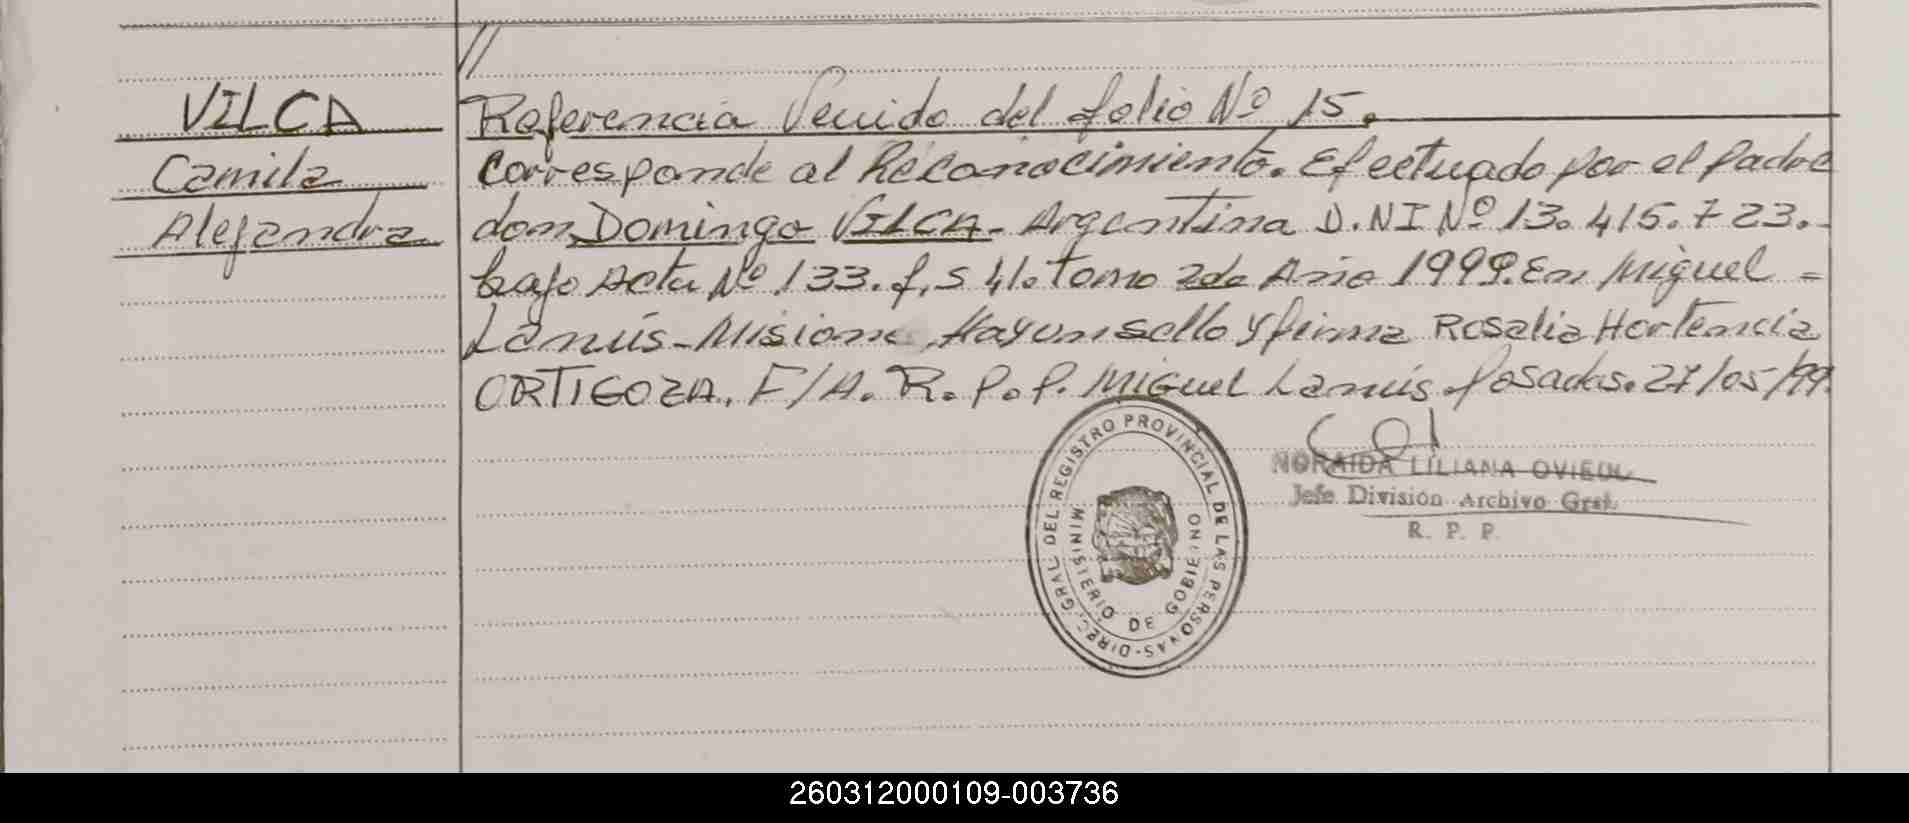 //
VILCA
Camila
Alejandra
Referencia Venido del folio Nº 15.
Corresponde al Reconocimiento. Efectuado por el Padre
don Domingo VILCA - Argentina D.NI Nº 13.415.723.-
bajo Acta Nº 133. f,s 41. Tomo 2do Año 1999. En Miguel =
Lanús - Misiones Hay un sello y firma Rosalia Hortencia
ORTIGOZA. F/A. R. P. P. Miguel Lanús Posadas. 27/05/99.
DIREC. GRAL DEL REGISTRO PROVINCIAL DE LAS PERSONAS-
MINISTERIO DE GOBIERNO
NORAIDA LILIANA OVIEDO
Jefe División Archivo Gral.
R. P. P.
260312000109-003736